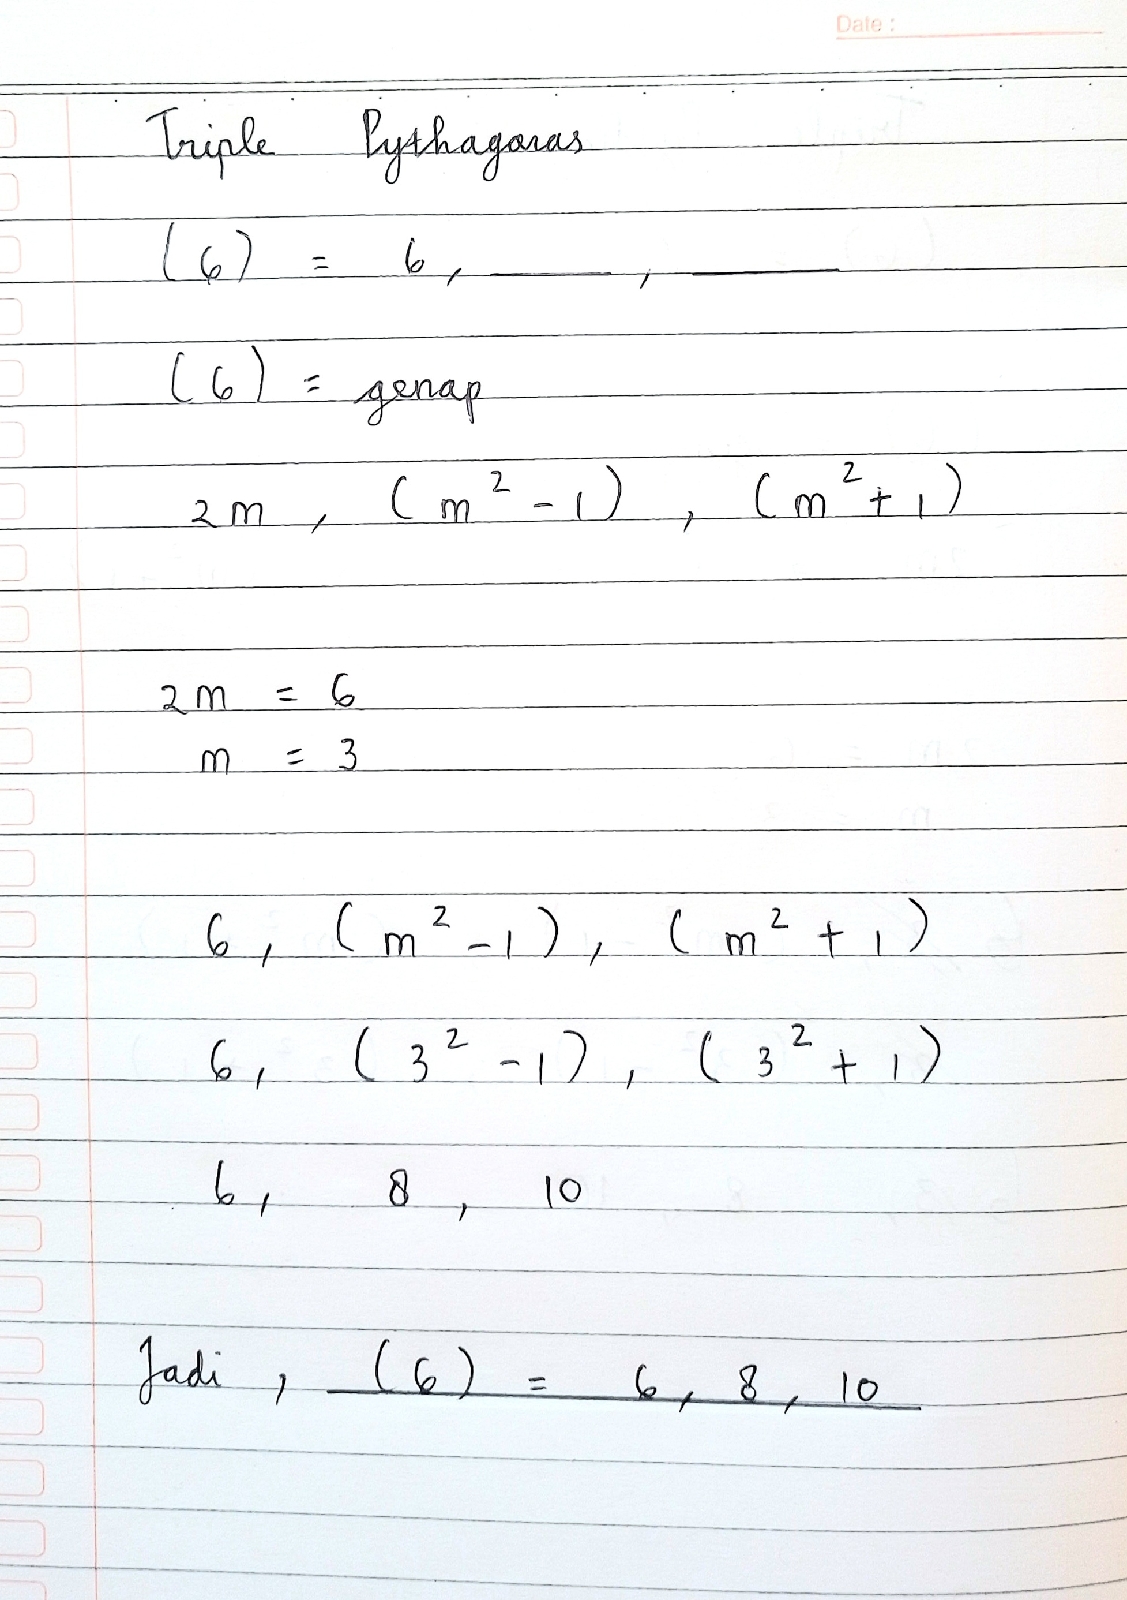 Date :
Triple Pythagoras
(6) = 6, ____, ____
(6) = genap
2m, (m² - 1), (m² + 1)
2m = 6
m = 3
6, (m² - 1), (m² + 1)
6, (3² - 1), (3² + 1)
6, 8, 10
Jadi, (6) = 6, 8, 10